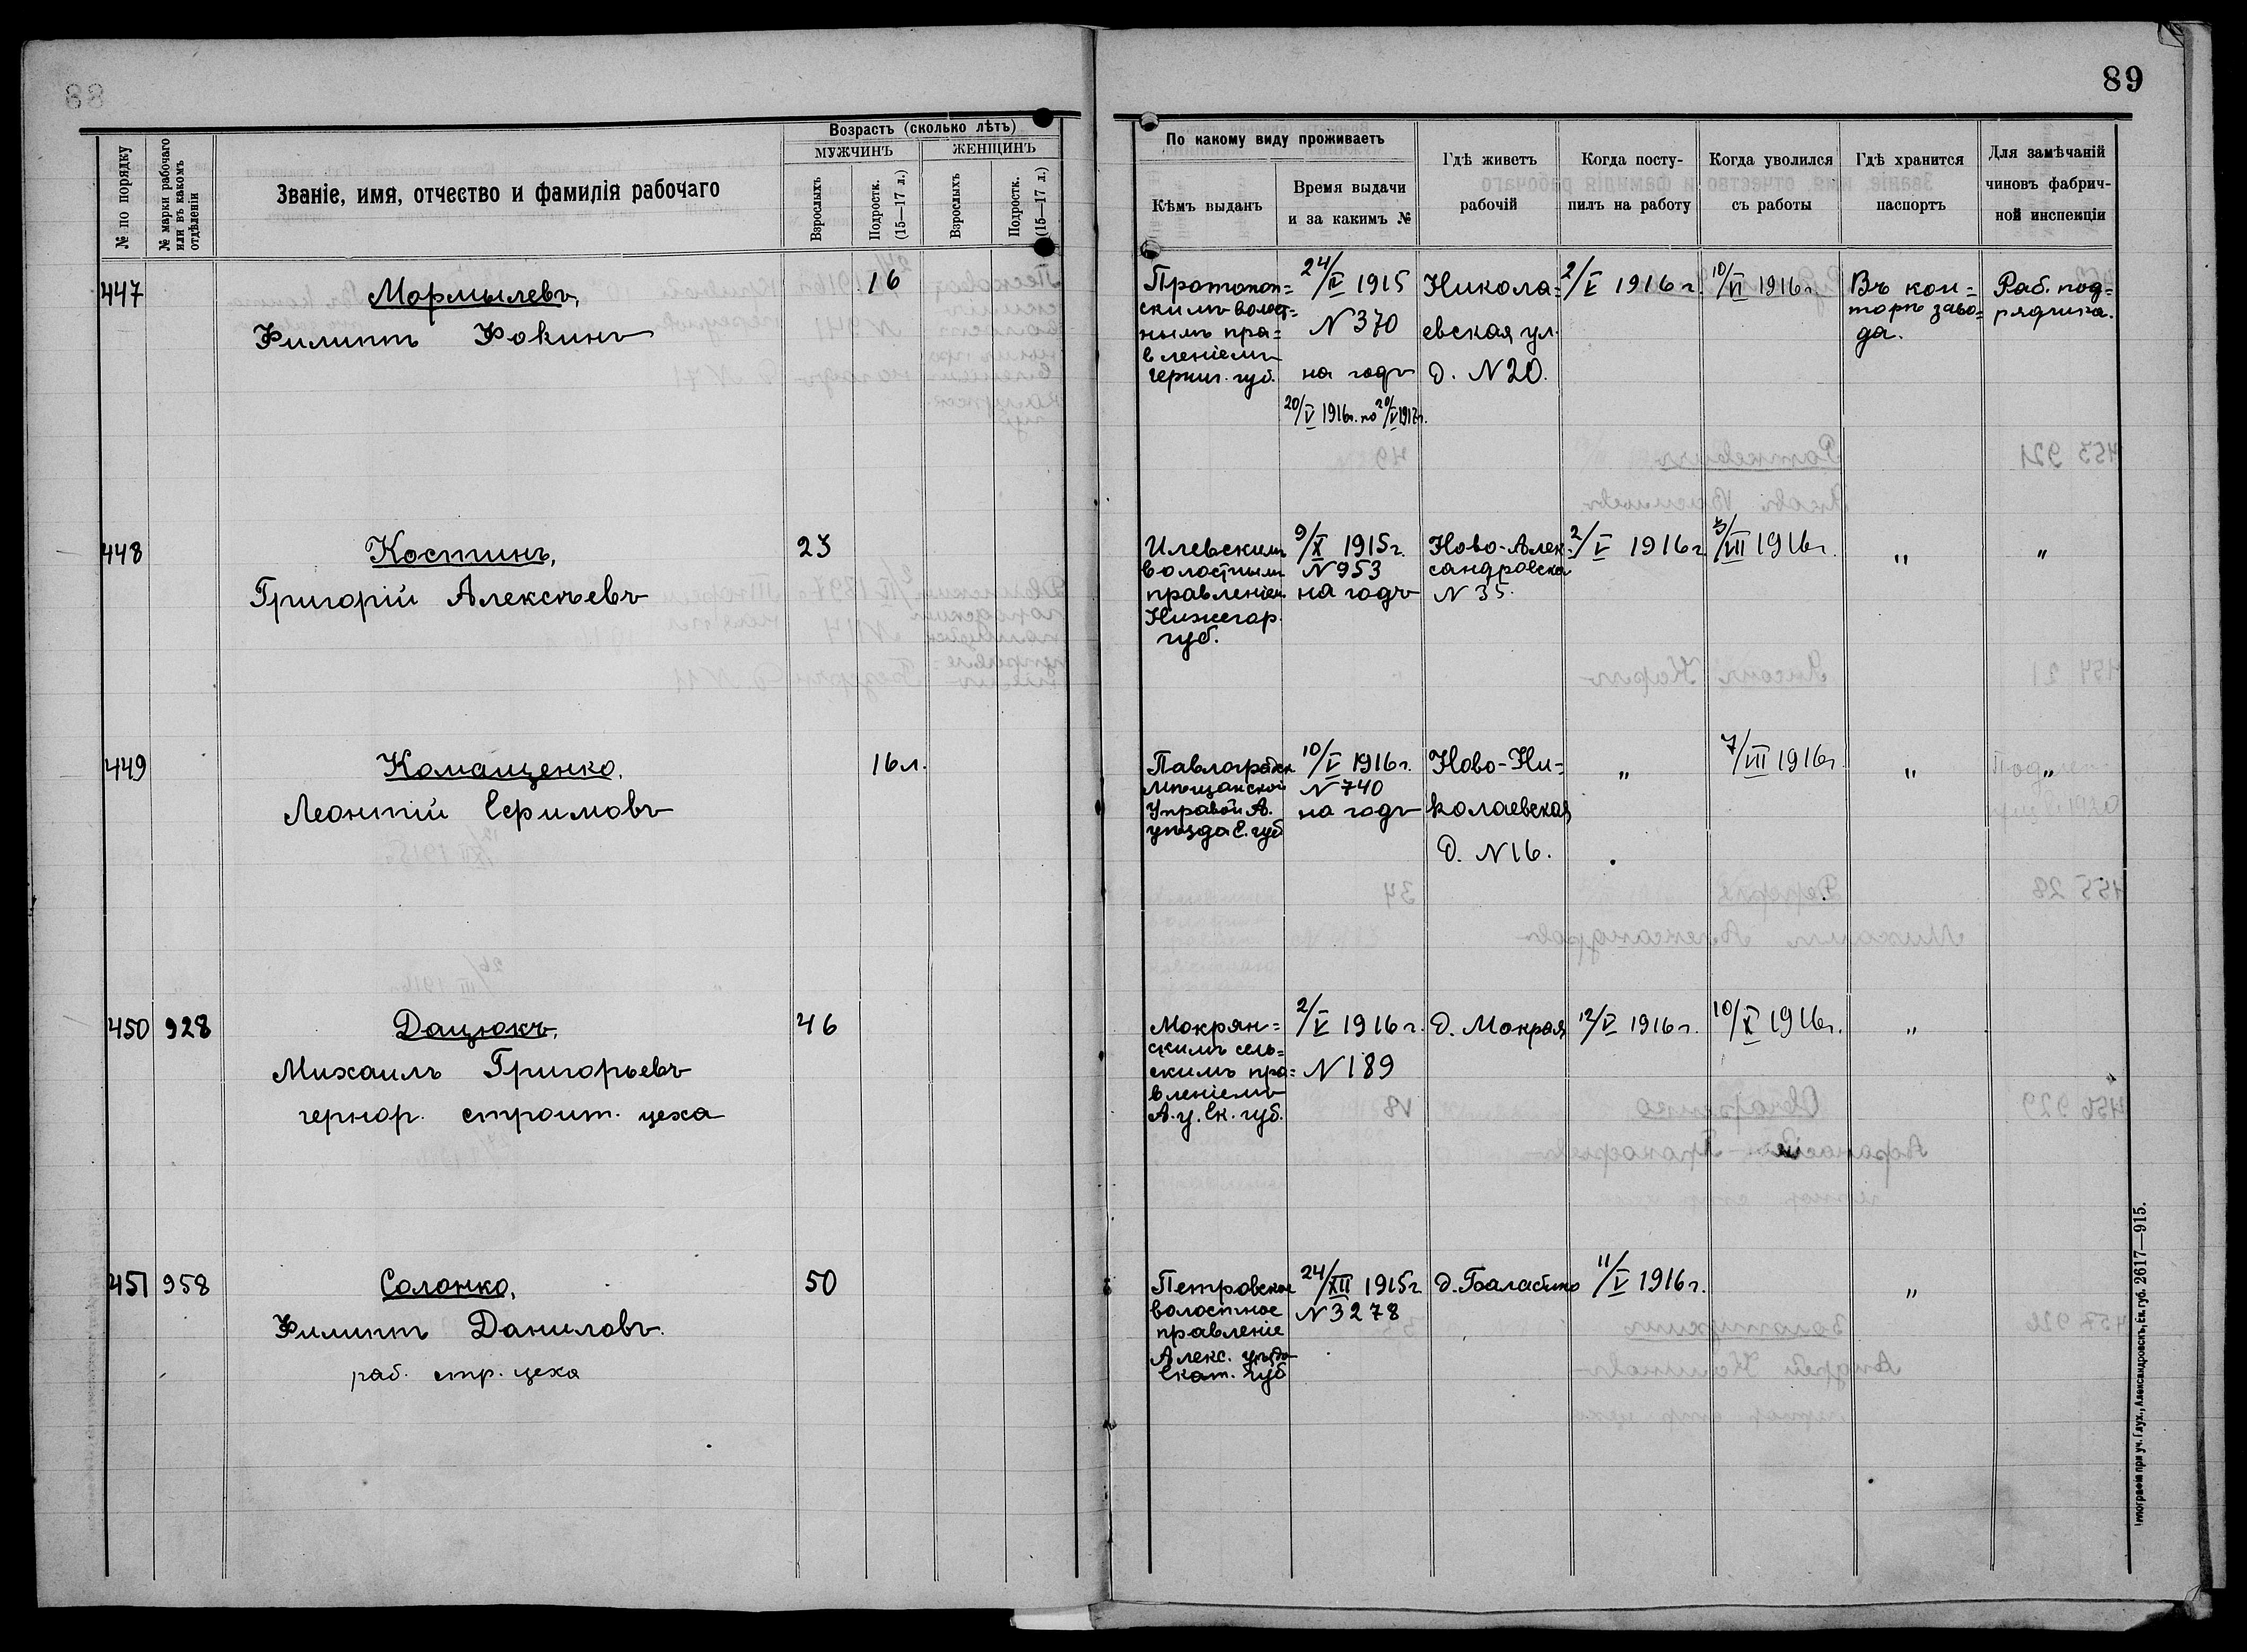 88
89
№ по порядку
№ марки рабочаго или въ какомъ отдѣленіи
Званіе, имя, отчество и фамилія рабочаго
Возрастъ (сколько лѣтъ)
МУЖЧИНЪ
ЖЕНЩИНЪ
Взрослыхъ
Подростк. (15—17 л.)
Взрослыхъ
Подростк. (15—17 л.)
По какому виду проживаетъ
Кѣмъ выданъ
Время выдачи
и за какимъ №
Гдѣ живетъ
рабочій
Когда посту-
пилъ на работу
Когда уволился
съ работы
Гдѣ хранится
паспортъ
Для замѣчаній
чиновъ фабрич-
ной инспекціи
447
Мормылевъ,
Филиппъ Фокинъ
16
Протопоп=
скимъ волост=
нымъ пра=
вленіемъ
черниг. губ.
24/IV 1915
N 370
на годъ
20/V 1916г. по 20/V 1917г.
Никола=
евская ул.
д. N 20.
2/V 1916 г.
10/VI 1916г.
Въ кон=
торѣ заво=
да.
Раб. под=
рядчика.
448
Костинъ,
Григорій Алексѣевъ
23
Илевскимъ
волостнымъ
правленіем
Нижегор.
губ.
9/X 1915 г.
N 953
на годъ
Ново-Алек-
сандровска
N 35.
2/V 1916 г.
3/VII 1916 г.
"
"
449
Комащенко,
Леонтій Ефимовъ
16 л.
Павлоградск
мѣщанской
Управой А.
уѣзда Е. губ
10/V 1916 г.
N 740
на годъ
Ново-Ни=
колаевская
д. N 16.
"
7/VII 1916г
"
"
450 928
Дацюкъ,
Михаилъ Григорьевъ
чернор. строит. цеха
46
Мокрян=
скимъ сель=
скимъ пра=
вленіемъ
А. у. Ек. губ.
2/V 1916 г.
N 189
д. Мокрая
12/V 1916 г.
10/X 1916г.
"
451 958
Солонко,
Филиппъ Даниловъ.
раб. стр. цеха
50
Петровское
волостное
правленіе
Алекс. уѣзда
Екат. губ
24/XII 1915 г.
N 3278
д. Балабино
11/V 1916 г.
"
Типографія при уч. Глух., Александровскъ, Ек. губ. 2617—915.